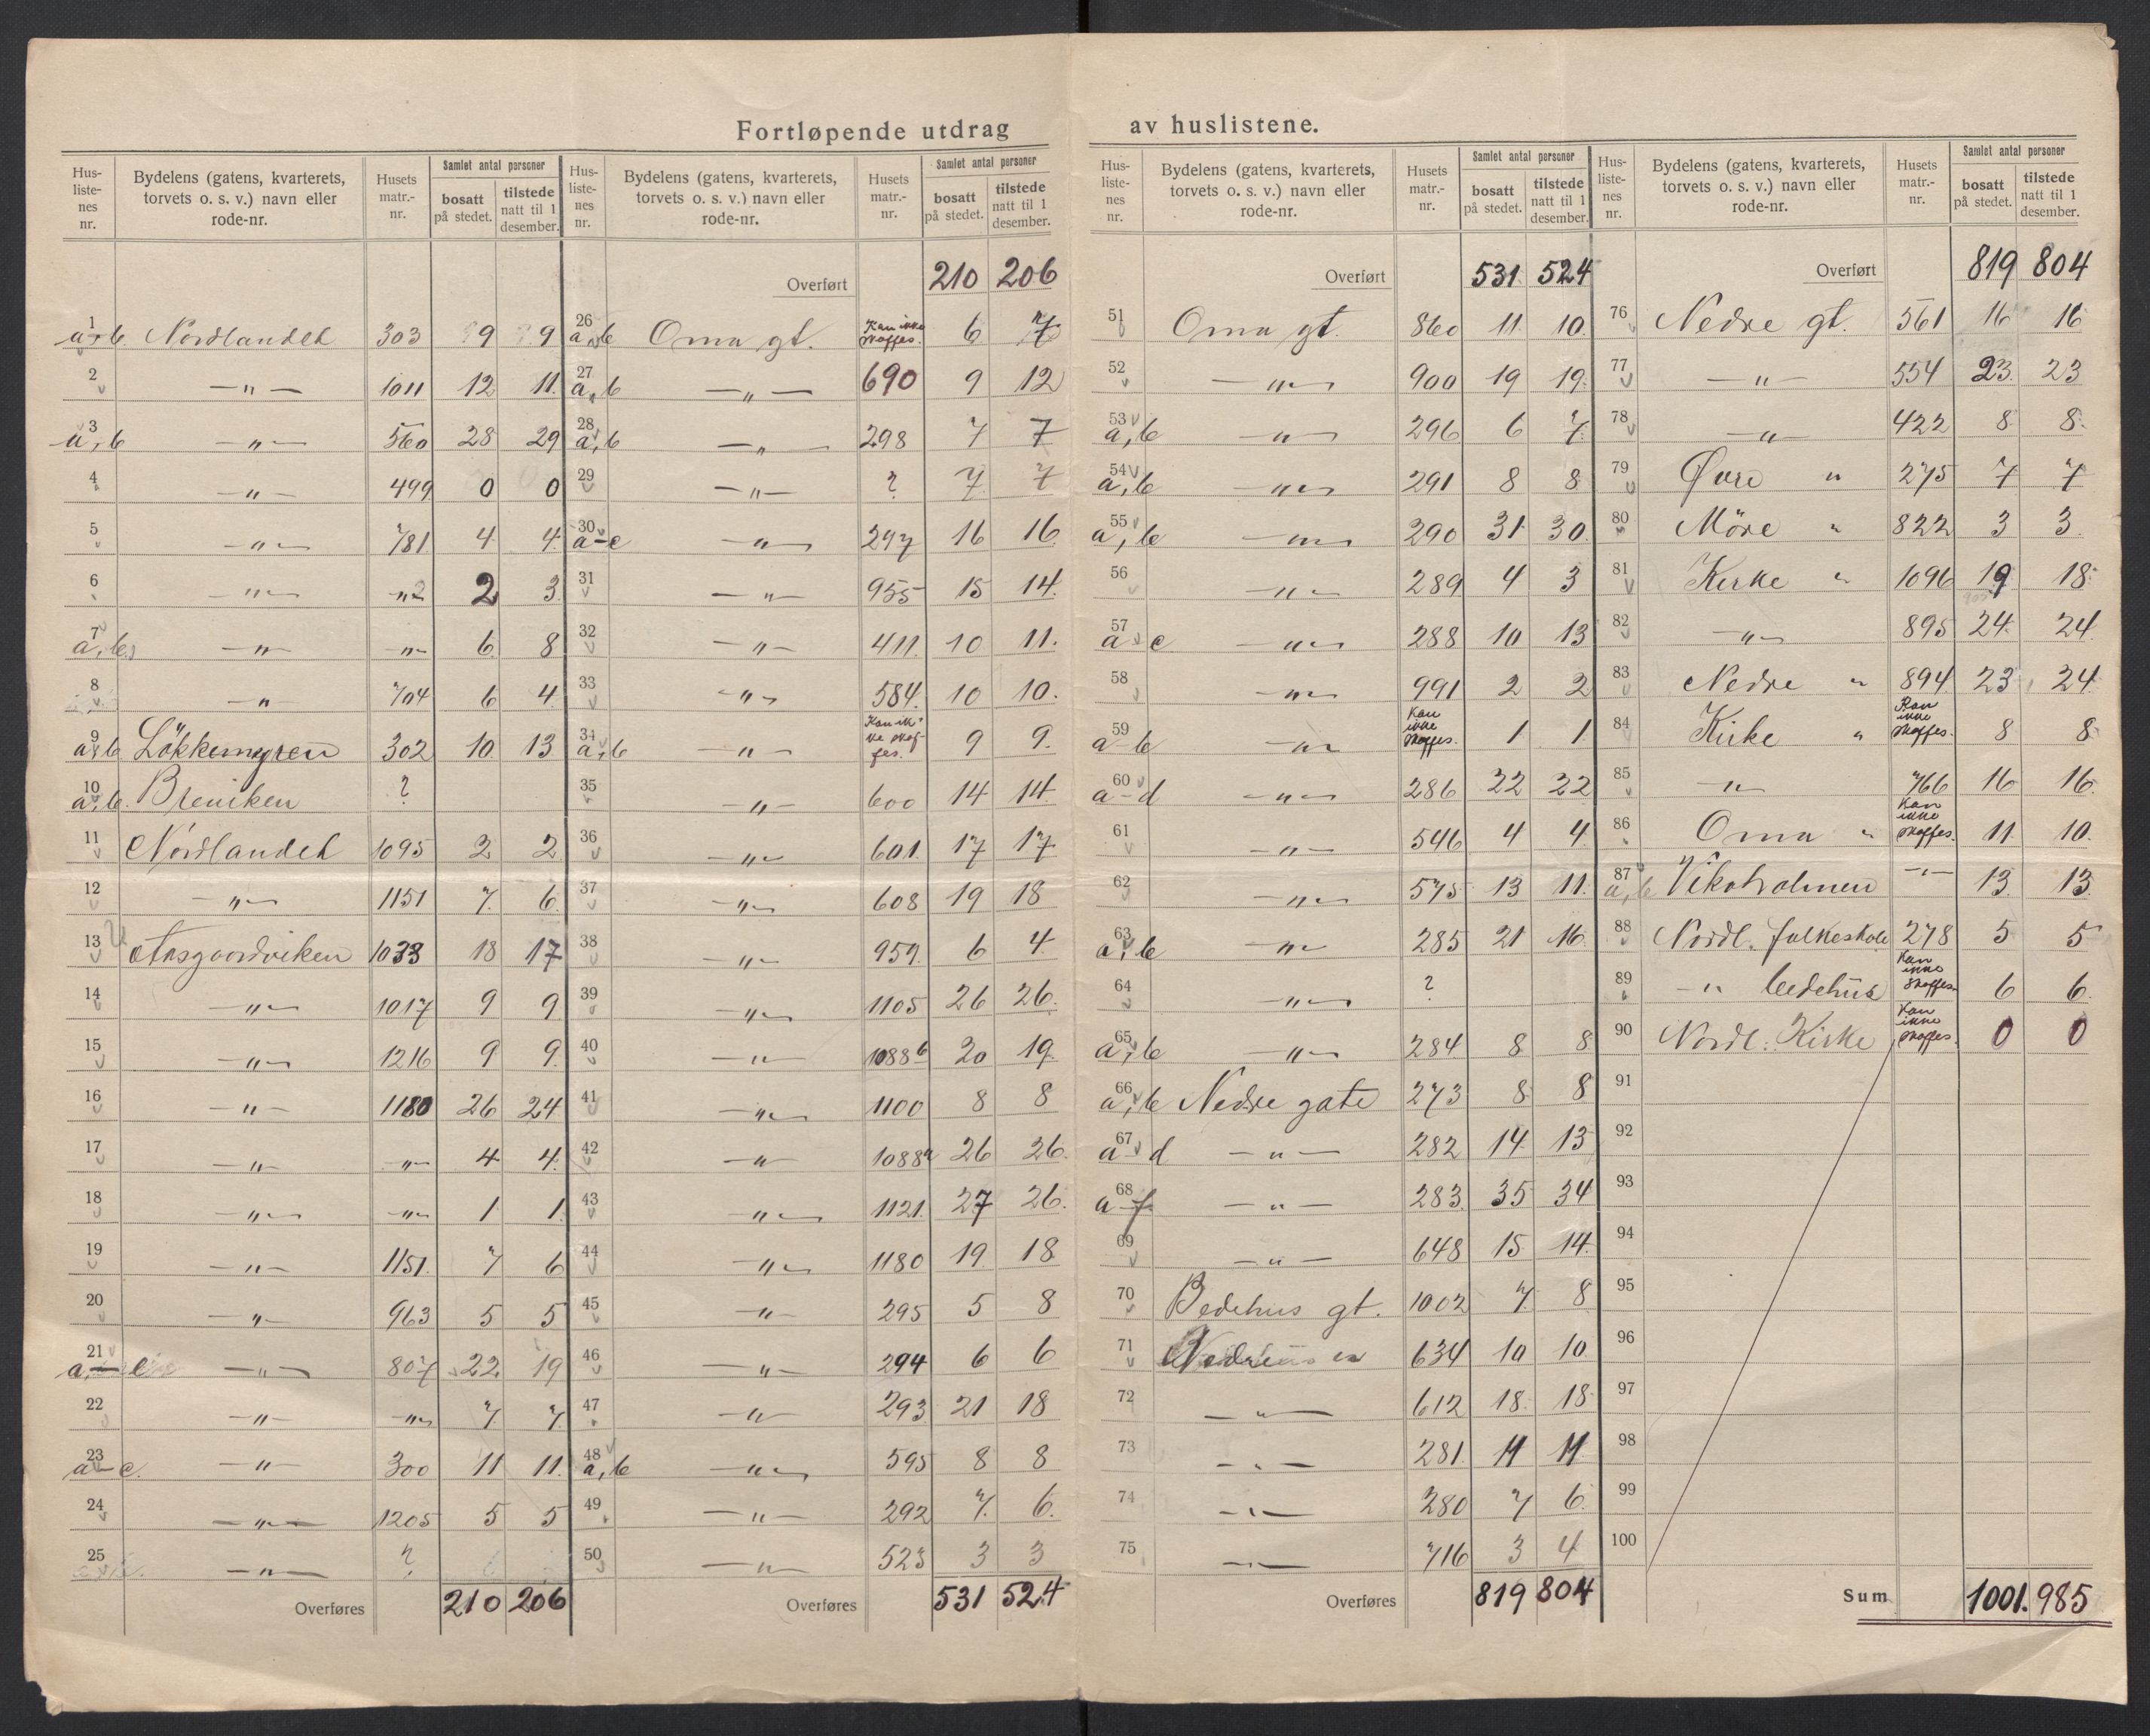 Fortløpende utdrag av huslistene.
Hus-liste-nes nr. | Bydelens (gatens, kvarterets, torvets o. s. v.) navn eller rode-nr. | Husets matr.-nr. | Samlet antal personer bosatt på stedet. | tilstede natt til 1 desember.
1 a+b Nordlandet 303 9 9
2 —"— 1011 12 11.
3 a,b —"— 560 28 29
4 —"— 499 0 0
5 —"— 781 4 4
6 —"— 2 3
7 a,b —"— —"— 6 8
8 —"— 704 6 4
9 a,b Lökkemyren 302 10 13
10 a,b ?
11 Nordlandet 1095 2 2
12 —"— 1151 7 6
13 1033 18 17
14 —"— 1017 9 9
15 —"— 1216 9 9
16 —"— 1180 26 24
17 —"— —"— 4 4
18 —"— —"— 1 1
19 —"— 1151 7 6
20 —"— 963 5 5
21 —"— 807 22 19
22 —"— —"— 7 7
23 a-c —"— 300 11 11
24 —"— 1205 5 5
25 —"— ?
Overføres 210 206
Hus-liste-nes nr. | Bydelens (gatens, kvarterets, torvets o. s. v.) navn eller rode-nr. | Husets matr.-nr. | Samlet antal personer bosatt på stedet. | tilstede natt til 1 desember.
Overført 210 206
26 a,b Oma gt. Kan ikke skaffes. 6 7
27 a,b —"— 690 9 12
28 a,b —"— 298 7 7
29 —"— ? 7 7
30 a-c —"— 297 16 16
31 —"— 955 15 14.
32 —"— 411 10 11.
33 —"— 584. 10 10.
34 a,b —"— Kan ikke skaffes. 9 9.
35 —"— 600 14 14
36 —"— 601 17 17
37 —"— 608 19 18
38 —"— 959 6 4
39 —"— 1105 26 26.
40 —"— 1088b 20 19.
41 —"— 1100 8 8
42 —"— 1088a 26 26.
43 —"— 1121 27 26.
44 —"— 1180 19 18
45 —"— 295 5 8
46 —"— 294 6 6
47 —"— 293 21 18
48 a,b —"— 595 8 8
49 —"— 292 7 6.
50 —"— 523 3 3
Overføres 531 524
Hus-liste-nes nr. | Bydelens (gatens, kvarterets, torvets o. s. v.) navn eller rode-nr. | Husets matr.-nr. | Samlet antal personer bosatt på stedet. | tilstede natt til 1 desember.
Overført 531 524
51 Oma gt. 860 11 10.
52 —"— 900 19 19.
53 a,b —"— 296 6 7
54 a,b —"— 291 8 8
55 a,b —"— 290 31 30
56 —"— 289 4 3
57 a-c —"— 288 10 13
58 —"— 991 2 2
59 a-b —"— Kan ikke skaffes. 1 1
60 a-d —"— 286 22 22
61 —"— 546 4 4
62 —"— 575 13 11
63 a,b —"— 285 21 16
64 —"— ?
65 a,b —"— 284 8 8
66 a,b Nedre gate 273 8 8
67 a-d —"— 282 14 13
68 a-f —"— 283 35 34
69 —"— 648 15 14.
70 Bedehus gt. 1002 7 8
71 634 10 10
72 —"— 612 18 18
73 —"— 281 11 11
74 —"— 280 7 6
75 —"— 716 3 4
Overføres 819 804
Hus-liste-nes nr. | Bydelens (gatens, kvarterets, torvets o. s. v.) navn eller rode-nr. | Husets matr.-nr. | Samlet antal personer bosatt på stedet. | tilstede natt til 1 desember.
Overført 819 804
76 Nedre gt. 561 16 16
77 —"— 554 23 23
78 —"— 422 8 8
79 Øvre " 275 7 7
80 Möre " 822 3 3
81 Kirke " 1096 19 18
82 —"— 895 24 24
83 Nedre " 894 23 24
84 Kirke " Kan ikke skaffes. 8 8
85 —"— 766 16 16
86 Oma " Kan ikke skaffes. 11 10
87 a,b Vikoholmen —"— 13 13
88 Nordl. folkeskole 278 5 5
89 —"— bedehus Kan ikke skaffes 6 6
90 Nordl. Kirke Kan ikke skaffes. 0 0
91
92
93
94
95
96
97
98
99
100
Sum 1001. 985